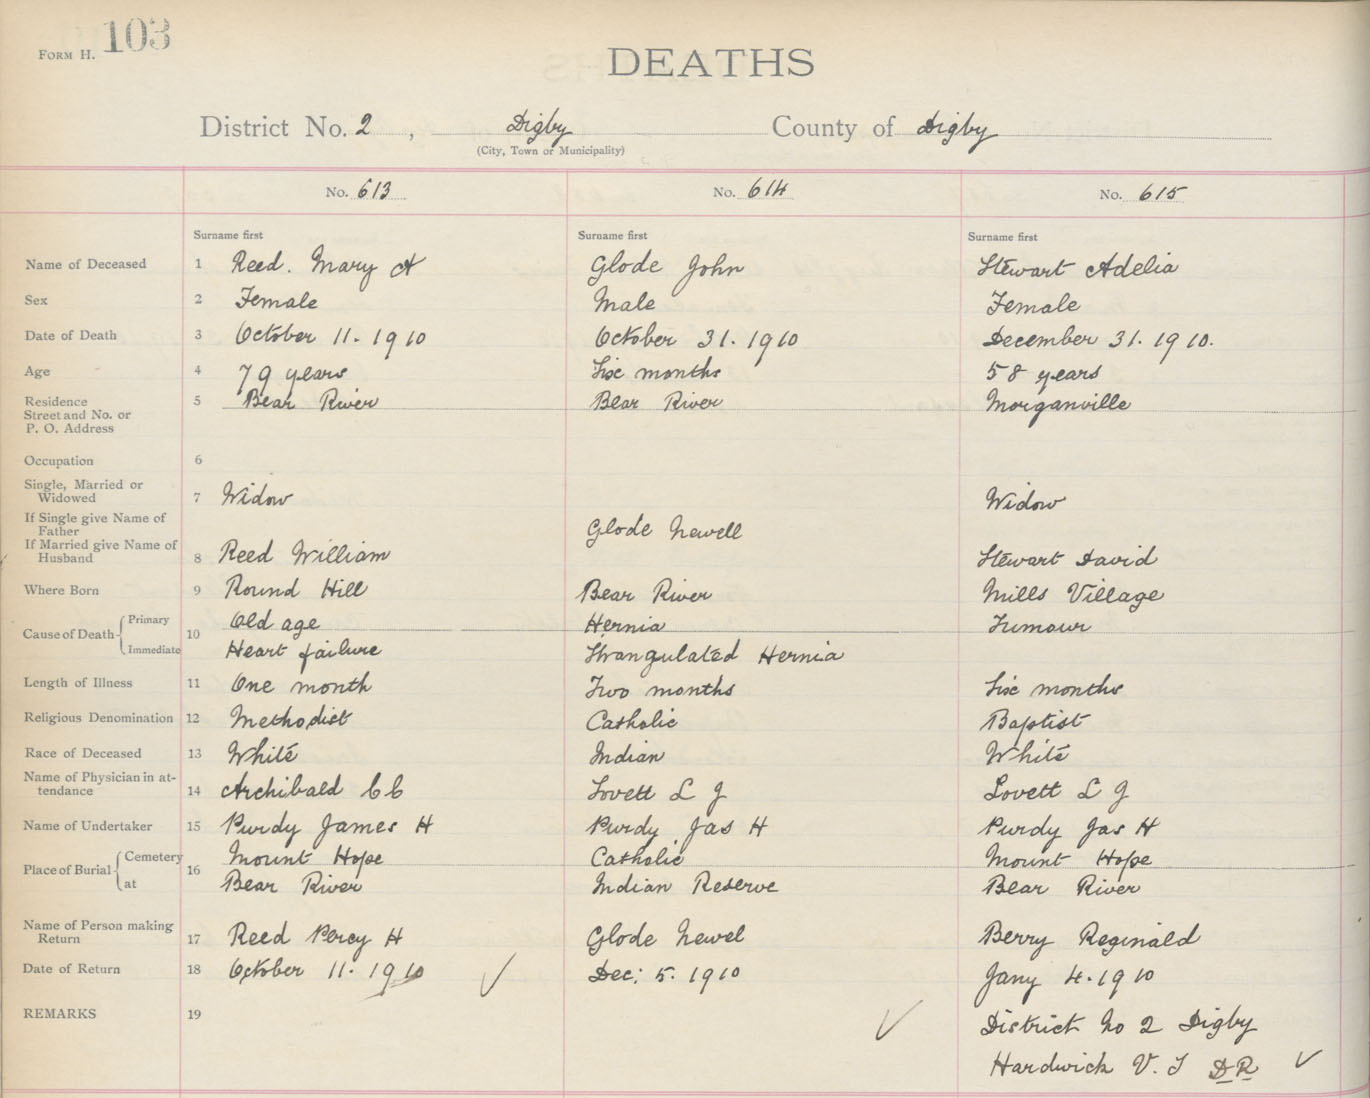 FORM H. 103
DEATHS
District No. 2, Digby County of Digby
(City, Town or Municipality)
No. 613 No. 614 No. 615
Surname first Surname first Surname first
Name of Deceased 1 Reed. Mary A Glode John Stewart Adelia
Sex 2 Female Male Female
Date of Death 3 October 11. 1910 October 31. 1910 December 31. 1910.
Age 4 79 years Six months 58 years
Residence 5 Bear River Bear River Morganville
Street and No. or
P. O. Address
Occupation 6
Single, Married or
Widowed 7 Widow Widow
If Single give Name of
Father Glode Newell
If Married give Name of
Husband 8 Reed William Stewart David
Where Born 9 Round Hill Bear River Mills Village
Cause of Death 10 Primary Old age Hernia Tumour
Immediate Heart failure Strangulated Hernia
Length of Illness 11 One month Two months Six months
Religious Denomination 12 Methodist Catholic Baptist
Race of Deceased 13 White Indian White
Name of Physician in at-
tendance 14 Archibald C C Lovett L J Lovett L J
Name of Undertaker 15 Purdy James H Purdy Jas H Purdy Jas H
Place of Burial 16 Cemetery Mount Hope Catholic Mount Hope
at Bear River Indian Reserve Bear River
Name of Person making
Return 17 Reed Percy H Glode Newel Berry Reginald
Date of Return 18 October 11. 1910 Dec: 5. 1910 Jany 4. 1910
REMARKS 19 District No 2 Digby
Hardwick V. T DR